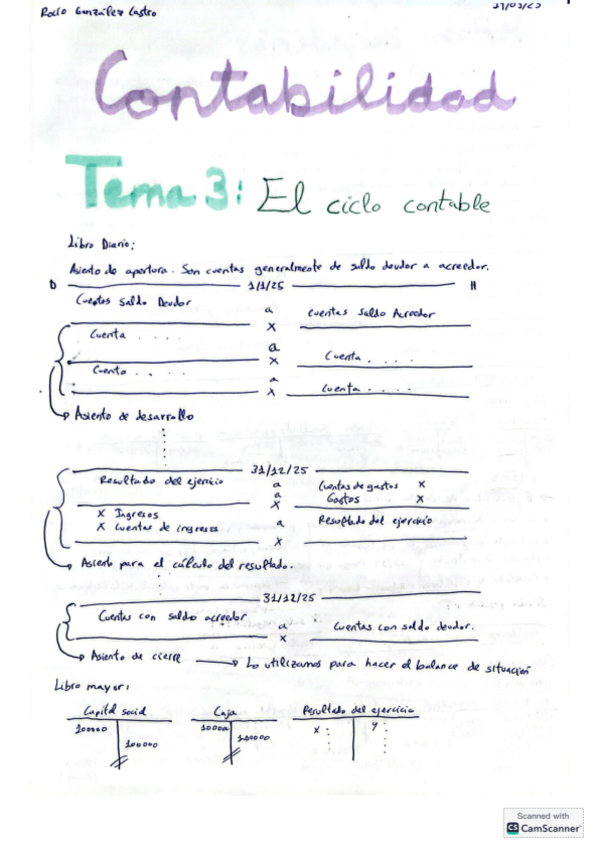 Rocío González Castro
Contabilidad
Tema 3: El ciclo contable
Libro Diario:
Asiento de apertura. Son cuentas generalmente de saldo deudor a acreedor.
D 1/1/25 H
Cuentas Saldo Deudor
a Cuentas Saldo Acreedor
x
Cuenta . . . .
a
x Cuenta . . . .
Cuenta . . . .
a
x Cuenta . . . .
Asiento de desarrollo
31/12/25
Resultado del ejercicio a Cuentas de gastos x
a Gastos x
x
x Ingresos
x Cuentas de ingresos a Resultado del ejercicio
x
Asiento para el cálculo del resultado.
31/12/25
Cuentas con saldo acreedor
a Cuentas con saldo deudor.
x
Asiento de cierre → Lo utilizamos para hacer el balance de situación
Libro mayor:
Capital social Caja Resultado del ejercicio
100000 x y
100000 100000
Scanned with
CS CamScanner